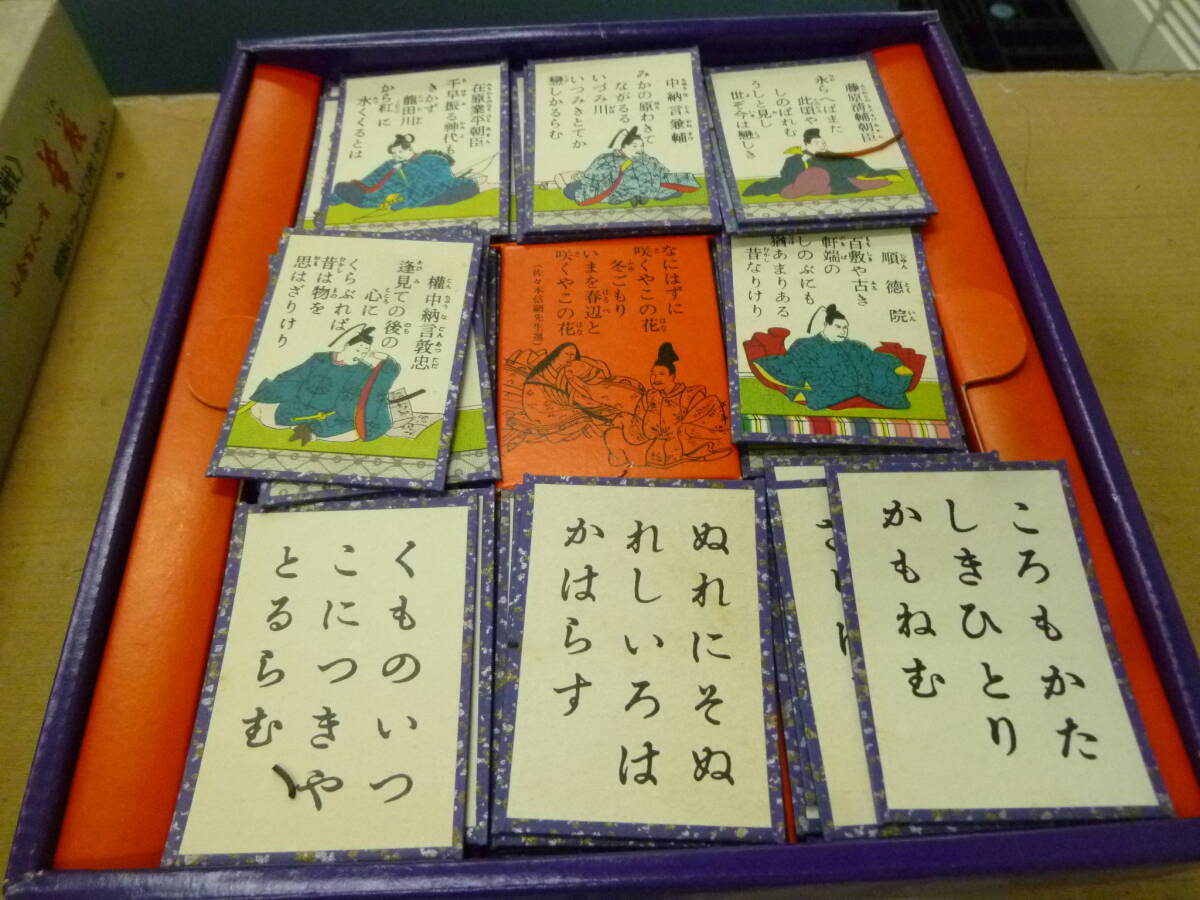 在原業平朝臣
千早振る神代も
きかず
龍田川
から紅に
水くくるとは
中納言兼輔
みかの原わきて
ながるる
いづみ川
いつみきとてか
戀しかるらむ
藤原淸輔朝臣
永らへばまた
此頃や
しのばれむ
うしと見し
世ぞ今は戀しき
權中納言敦忠
逢見ての後の
心に
くらぶれば
昔は物を
思はざりけり
なにはずに
咲くやこの花
冬ごもり
いまを春辺と
咲くやこの花
(佐々木信綱先生選)
順德院
百敷や古き
軒端の
しのぶにも
猶あまりある
昔なりけり
くものいつ
こにつきや
とるらむ
ぬれにそぬ
れしいろは
かはらす
ころもかた
しきひとり
かもねむ